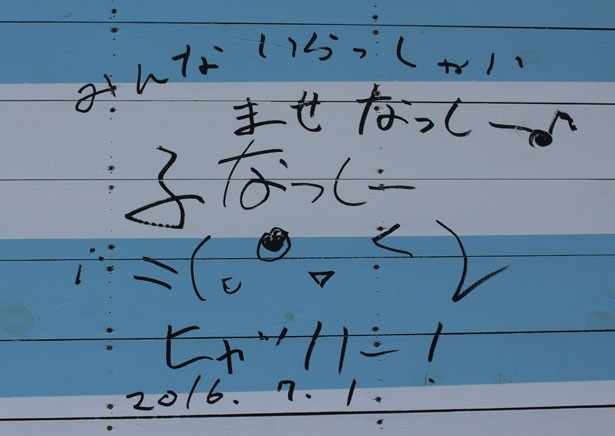 みんないらっしゃい
ませなっしー♪
ふなっしー
ヒャッハー!
2016.7.1